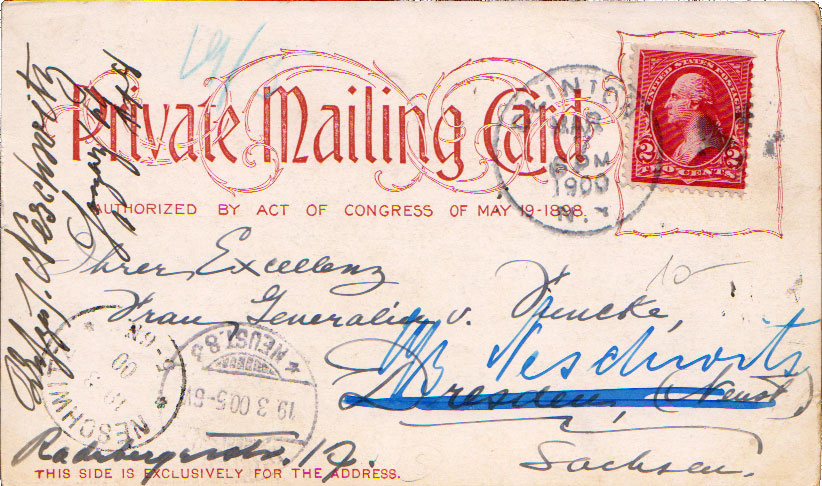 Private Mailing Card
AUTHORIZED BY ACT OF CONGRESS OF MAY 19-1898.
UNITED STATES POSTAGE
2 2
TWO CENTS
CLINTON
MAR
M
1900
N.Y.
Ihrer Excellenz
Frau Generalin v.
Neschwitz
Dresden, (Neust.),
Radebergerstr.
Sachsen.
THIS SIDE IS EXCLUSIVELY FOR THE ADDRESS.
Neschwitz
NEUST. 8.
19 3 00.5-6N
NESCHWITZ
19 3
00
5-6N